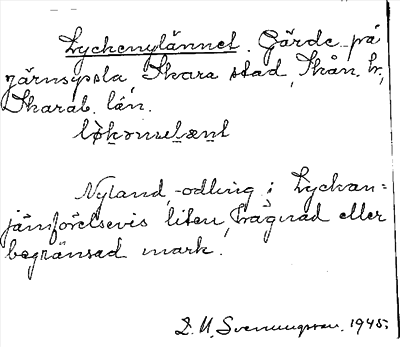 Lyckenylännet. Gärde på
Järnsyssla, Skara stad, Skån. hr,
Skarab. län.
løkənuelænt
Nyland, -odling i Lyckan =
jämförelsevis liten, hägnad eller
begränsad mark.
D. U. Svenungsson. 1945.